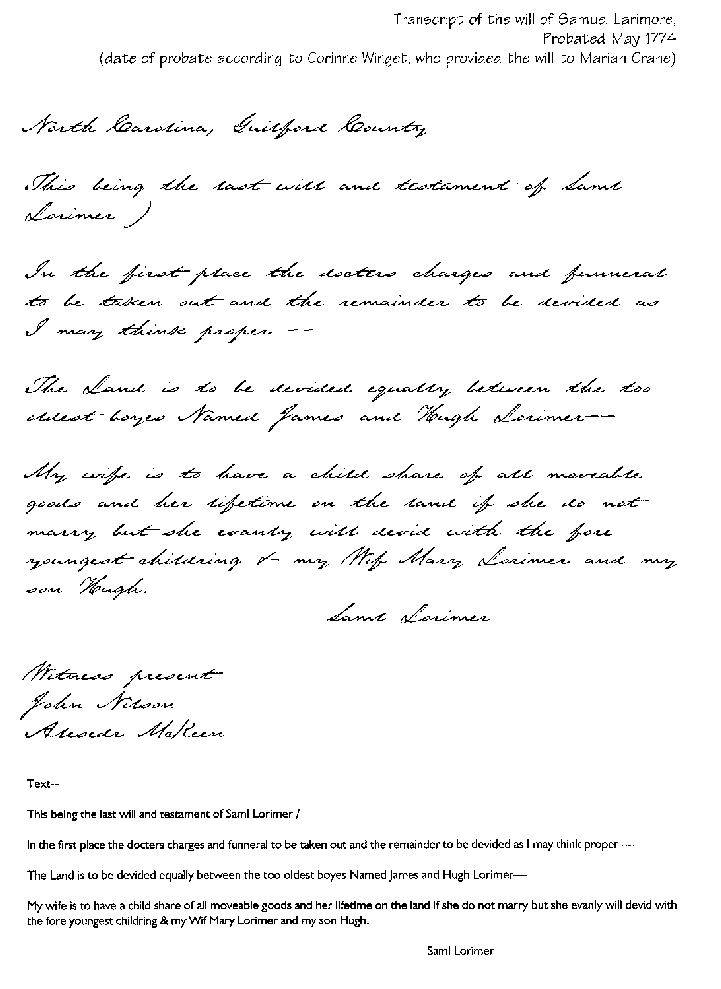 Transcript of the will of Samuel Larimore,
Probated May 1774
(date of probate according to Corinne Winget, who provided the will to Marian Crane)
North Carolina, Guilford County
This being the last will and testament of Saml
Lorimer )
In the first place the docters charges and funneral
to be taken out and the remainder to be devided as
I may think proper --
The Land is to be devided equally between the too
oldest boyes Named James and Hugh Lorimer--
My wife is to have a child share of all moveable
goods and her lifetime on the land if she do not
marry but she evanly will devid with the fore
youngest childring & my Wif Mary Lorimer and my
son Hugh.
Saml Lorimer
Witness present
John Nilson
McKeen
Text--
This being the last will and testament of Saml Lorimer /
In the first place the docters charges and funneral to be taken out and the remainder to be devided as I may think proper ----
The Land is to be devided equally between the too oldest boyes Named James and Hugh Lorimer—
My wife is to have a child share of all moveable goods and her lifetime on the land if she do not marry but she evanly will devid with
the fore youngest childring & my Wif Mary Lorimer and my son Hugh.
Saml Lorimer